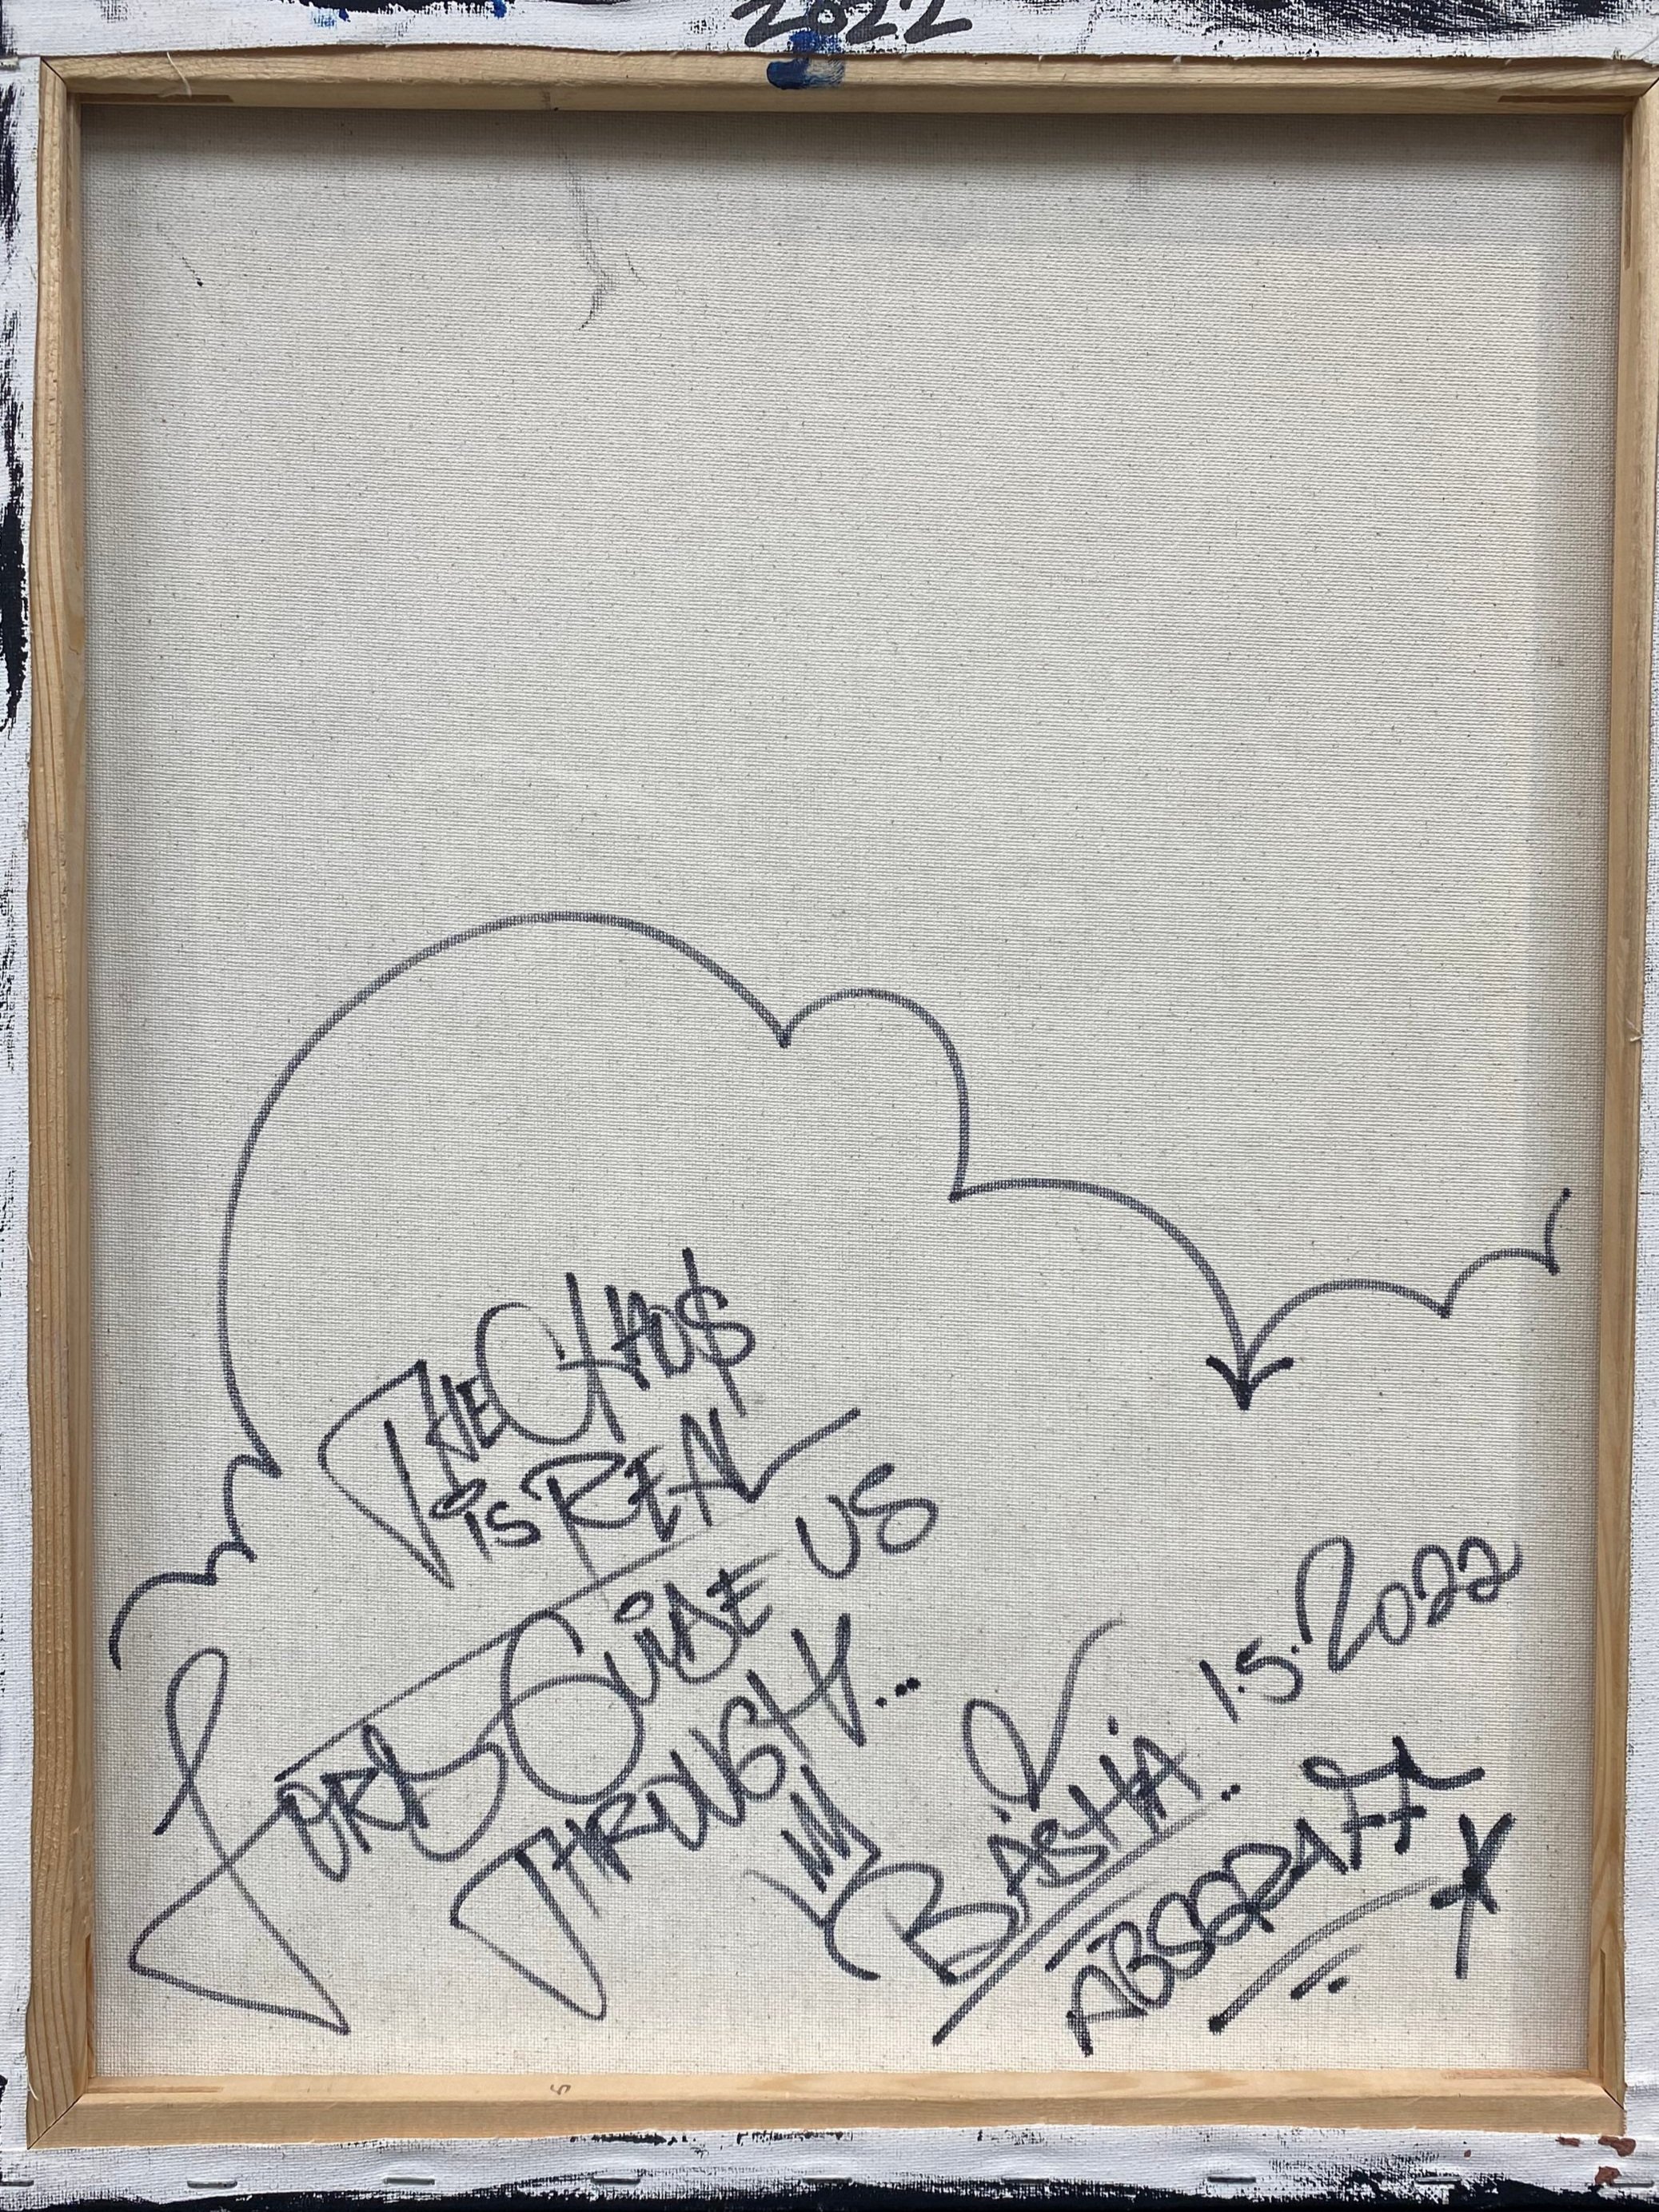 2022
THE CHAO$
iS REAL
LORD GUiDE US
THROUGH...
BASHA. 1.5.2022
ABSGRAFF